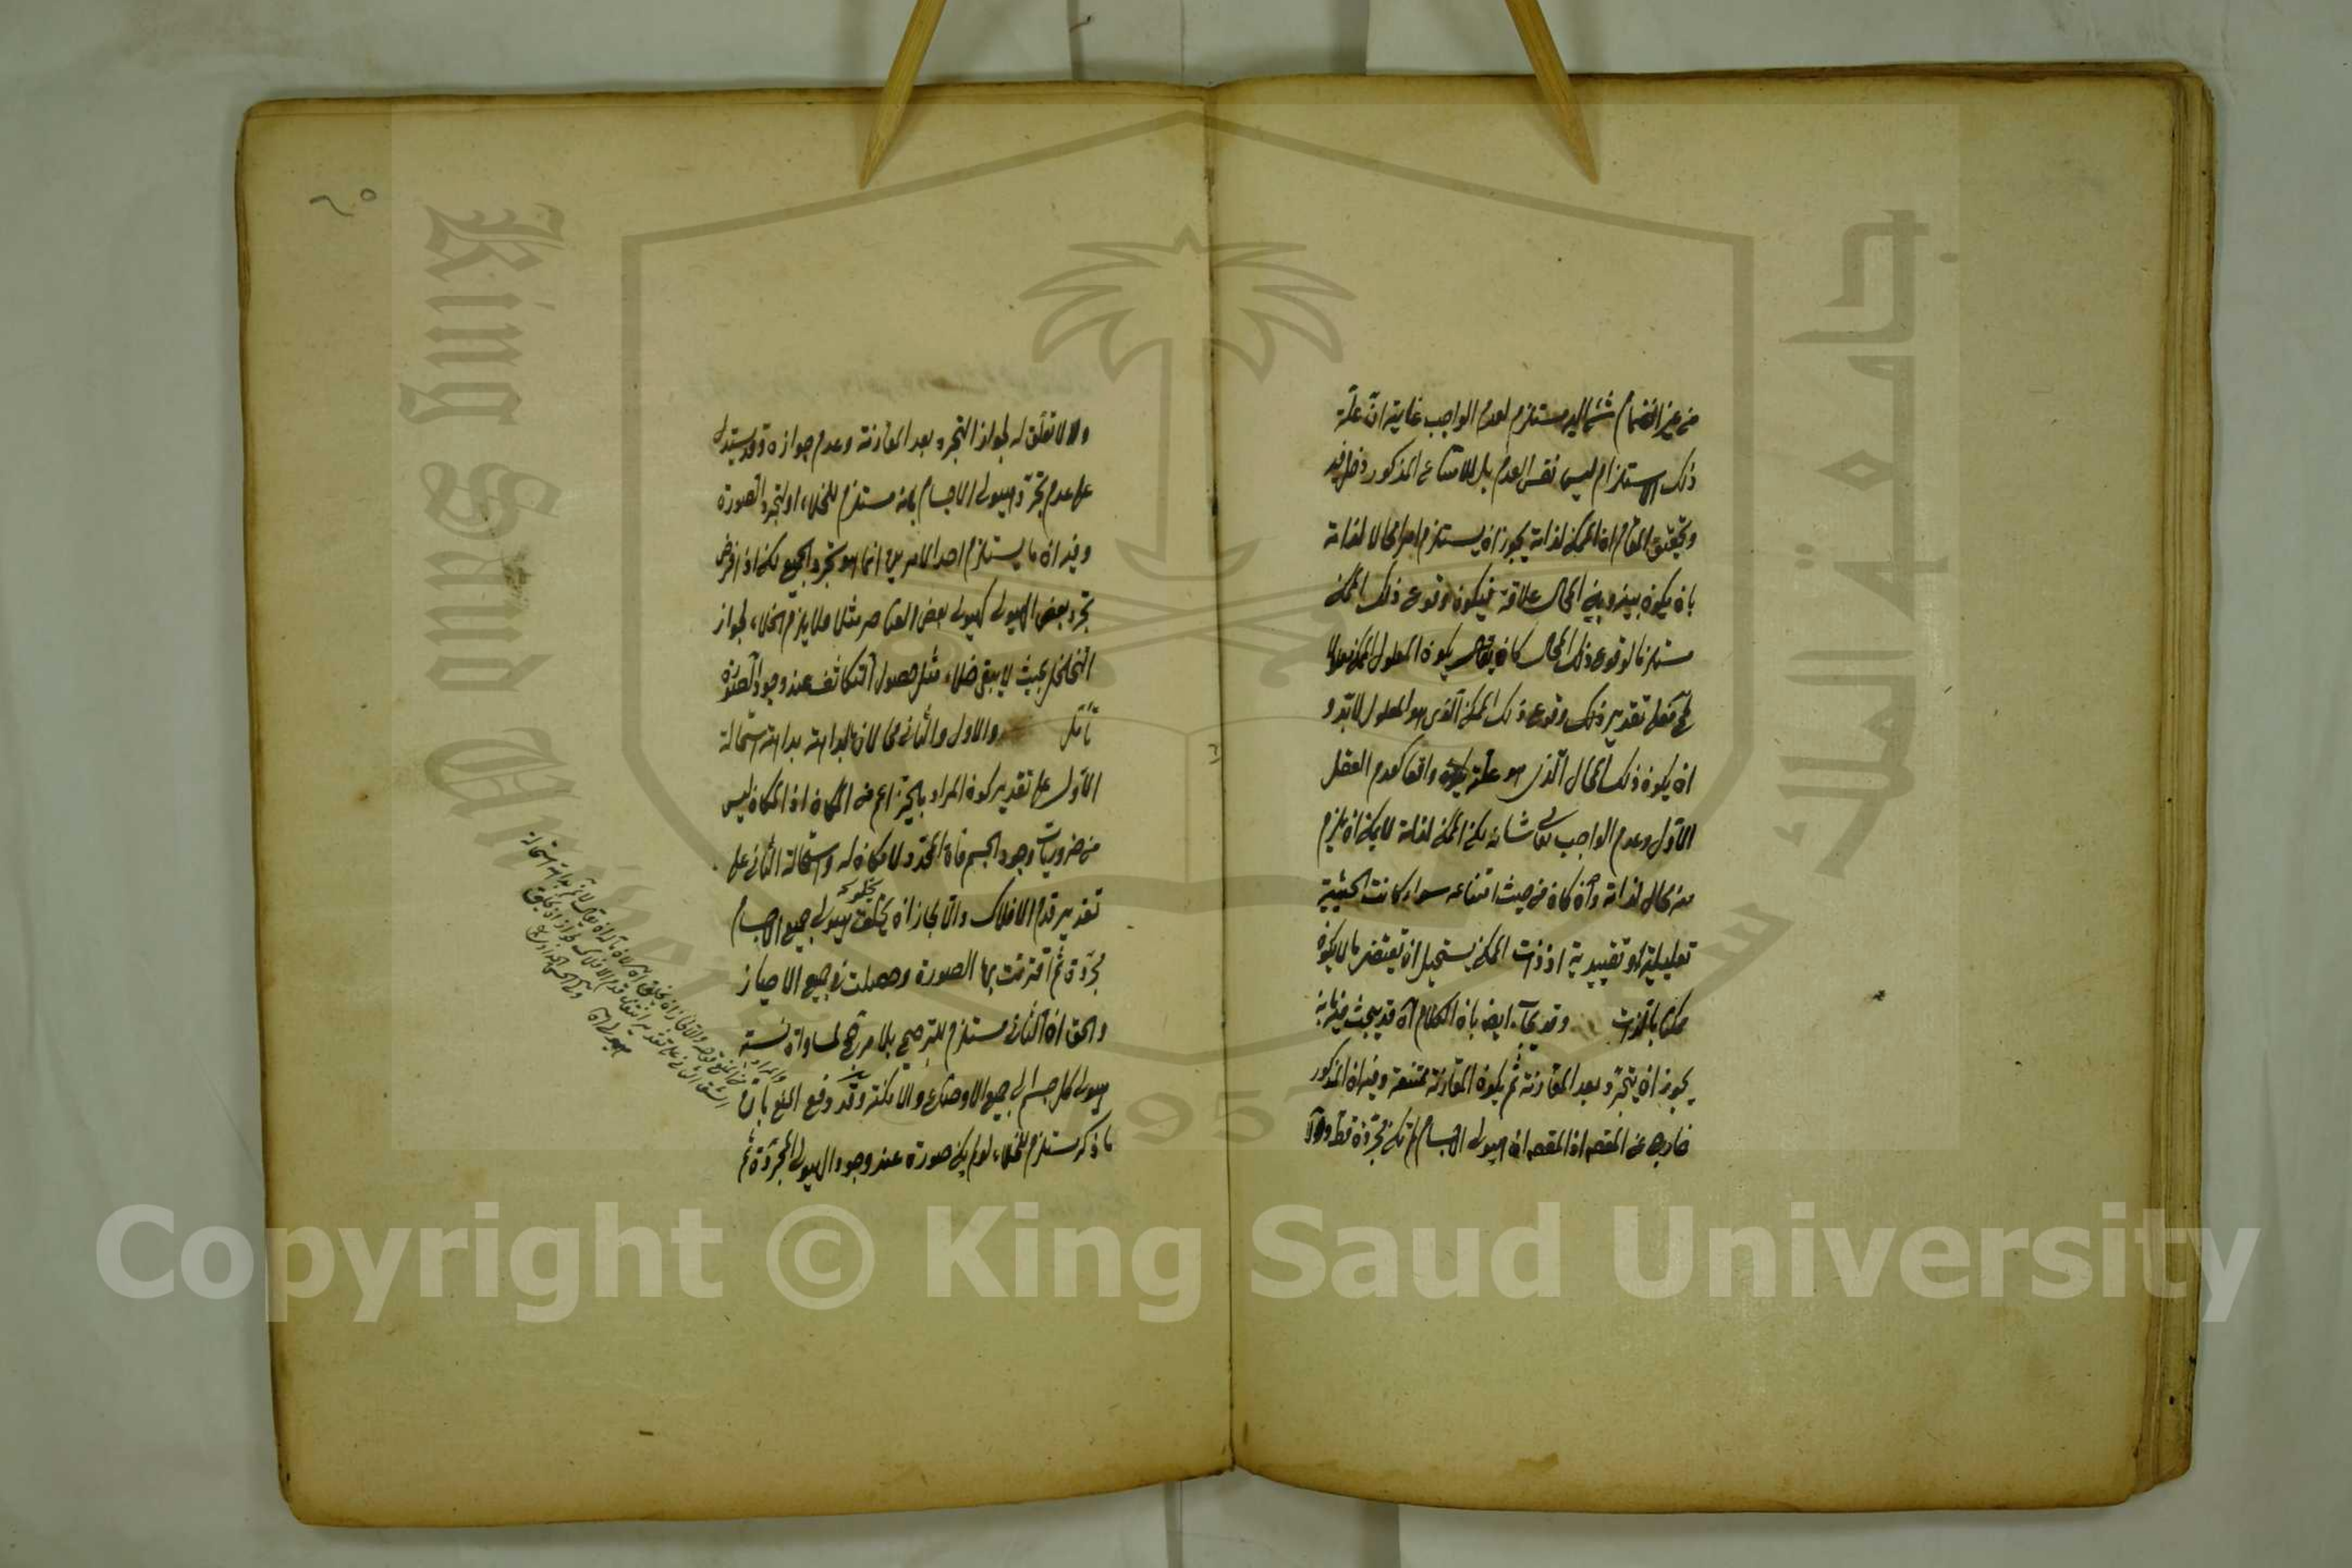 من غير انضمام شئ اليه مستلزم لعدم الواجب غايته انّ علّة
ذلك الاستلزام ليس نفس العدم بل للامتناع المذكور دخل فيه
وتحقيق المقام ان الممكن لذاته يجوز ان يستلزم امرا محالا لذاته
بان يكون بينه وبين المحال علاقة فيكون وقوع ذلك الممكن
مستلزما لوقوع ذلك المحال كان يكون المعلول الممكن معلولا
فعلى تقدير ذلك وقوع ذلك الممكن الّذى هو المعلول لا بدّ و
ان يكون ذلك المحال الّذى هو علّته واقعا كعدم العقل
الاوّل وعدم الواجب تعالى شانه لكن الممكن لذاته لا يمكن ان يلزم
منه محال لذاته وان كان من حيث امتناعه سواء كانت الحيثية
تعليلية او تقييدية اذ ذات الممكن يستحيل ان تقتضى ما لا يكون
ممكنا بالذات وقد يجاب ايضا بان الكلام قد يبحث فيه بانه
يجوز ان يتجرّد بعد المقارنة ثم يكون المقارنة ممتنعة وفيه ان المذكور
خارج عن المقصد اذ المقصد ان هيولى الاجسام لم تكن مجرّدة قط والّا
ولا تعلّق له بجواز التجرد بعد المقارنة وعدم جوازه وقد يستدل
على عدم تجرّد هيولى الاجسام بانه مستلزم للخلاء او لتجرد الصورة
وفيه ان ما يستلزم احد الامرين انما هو تجرد الجميع لكن اذا فرض
تجرد بعض الهيولى كهيولى بعض العناصر مثلا فلا يلزم الخلاء لجواز
التخلخل بحيث لا يبقى خلاء مثل حصول التكاثف عند وجود الصورة
تأمل والاول والثانى محالان بالبداهة بداهة استحالة
الاوّل على تقدير كون المراد بالحيّز اعم من المكان اذ المكان ليس
من ضروريات وجود الجسم فان المحدّد لا مكان له واستحالة الثانى على
تقدير قدم الافلاك والّا لجاز ان يخلق هيولى جميع الاجسام
مجرّدة ثم اقترنت بها الصورة وحصلت فى جميع الاحياز
والحق ان الثانى مستلزم للترجيح بلا مرجّح لمساواة نسبة
هيولى كل جسم الى جميع الاوضاع والامكنة وقد دفع المنع بان
ما ذكر مستلزم للخلاء لو لم يكن صورة عند وجود الهيولى المجرّدة ثم
٢٥
King Saud University
جامعة الملك سعود
1957
Copyright © King Saud University